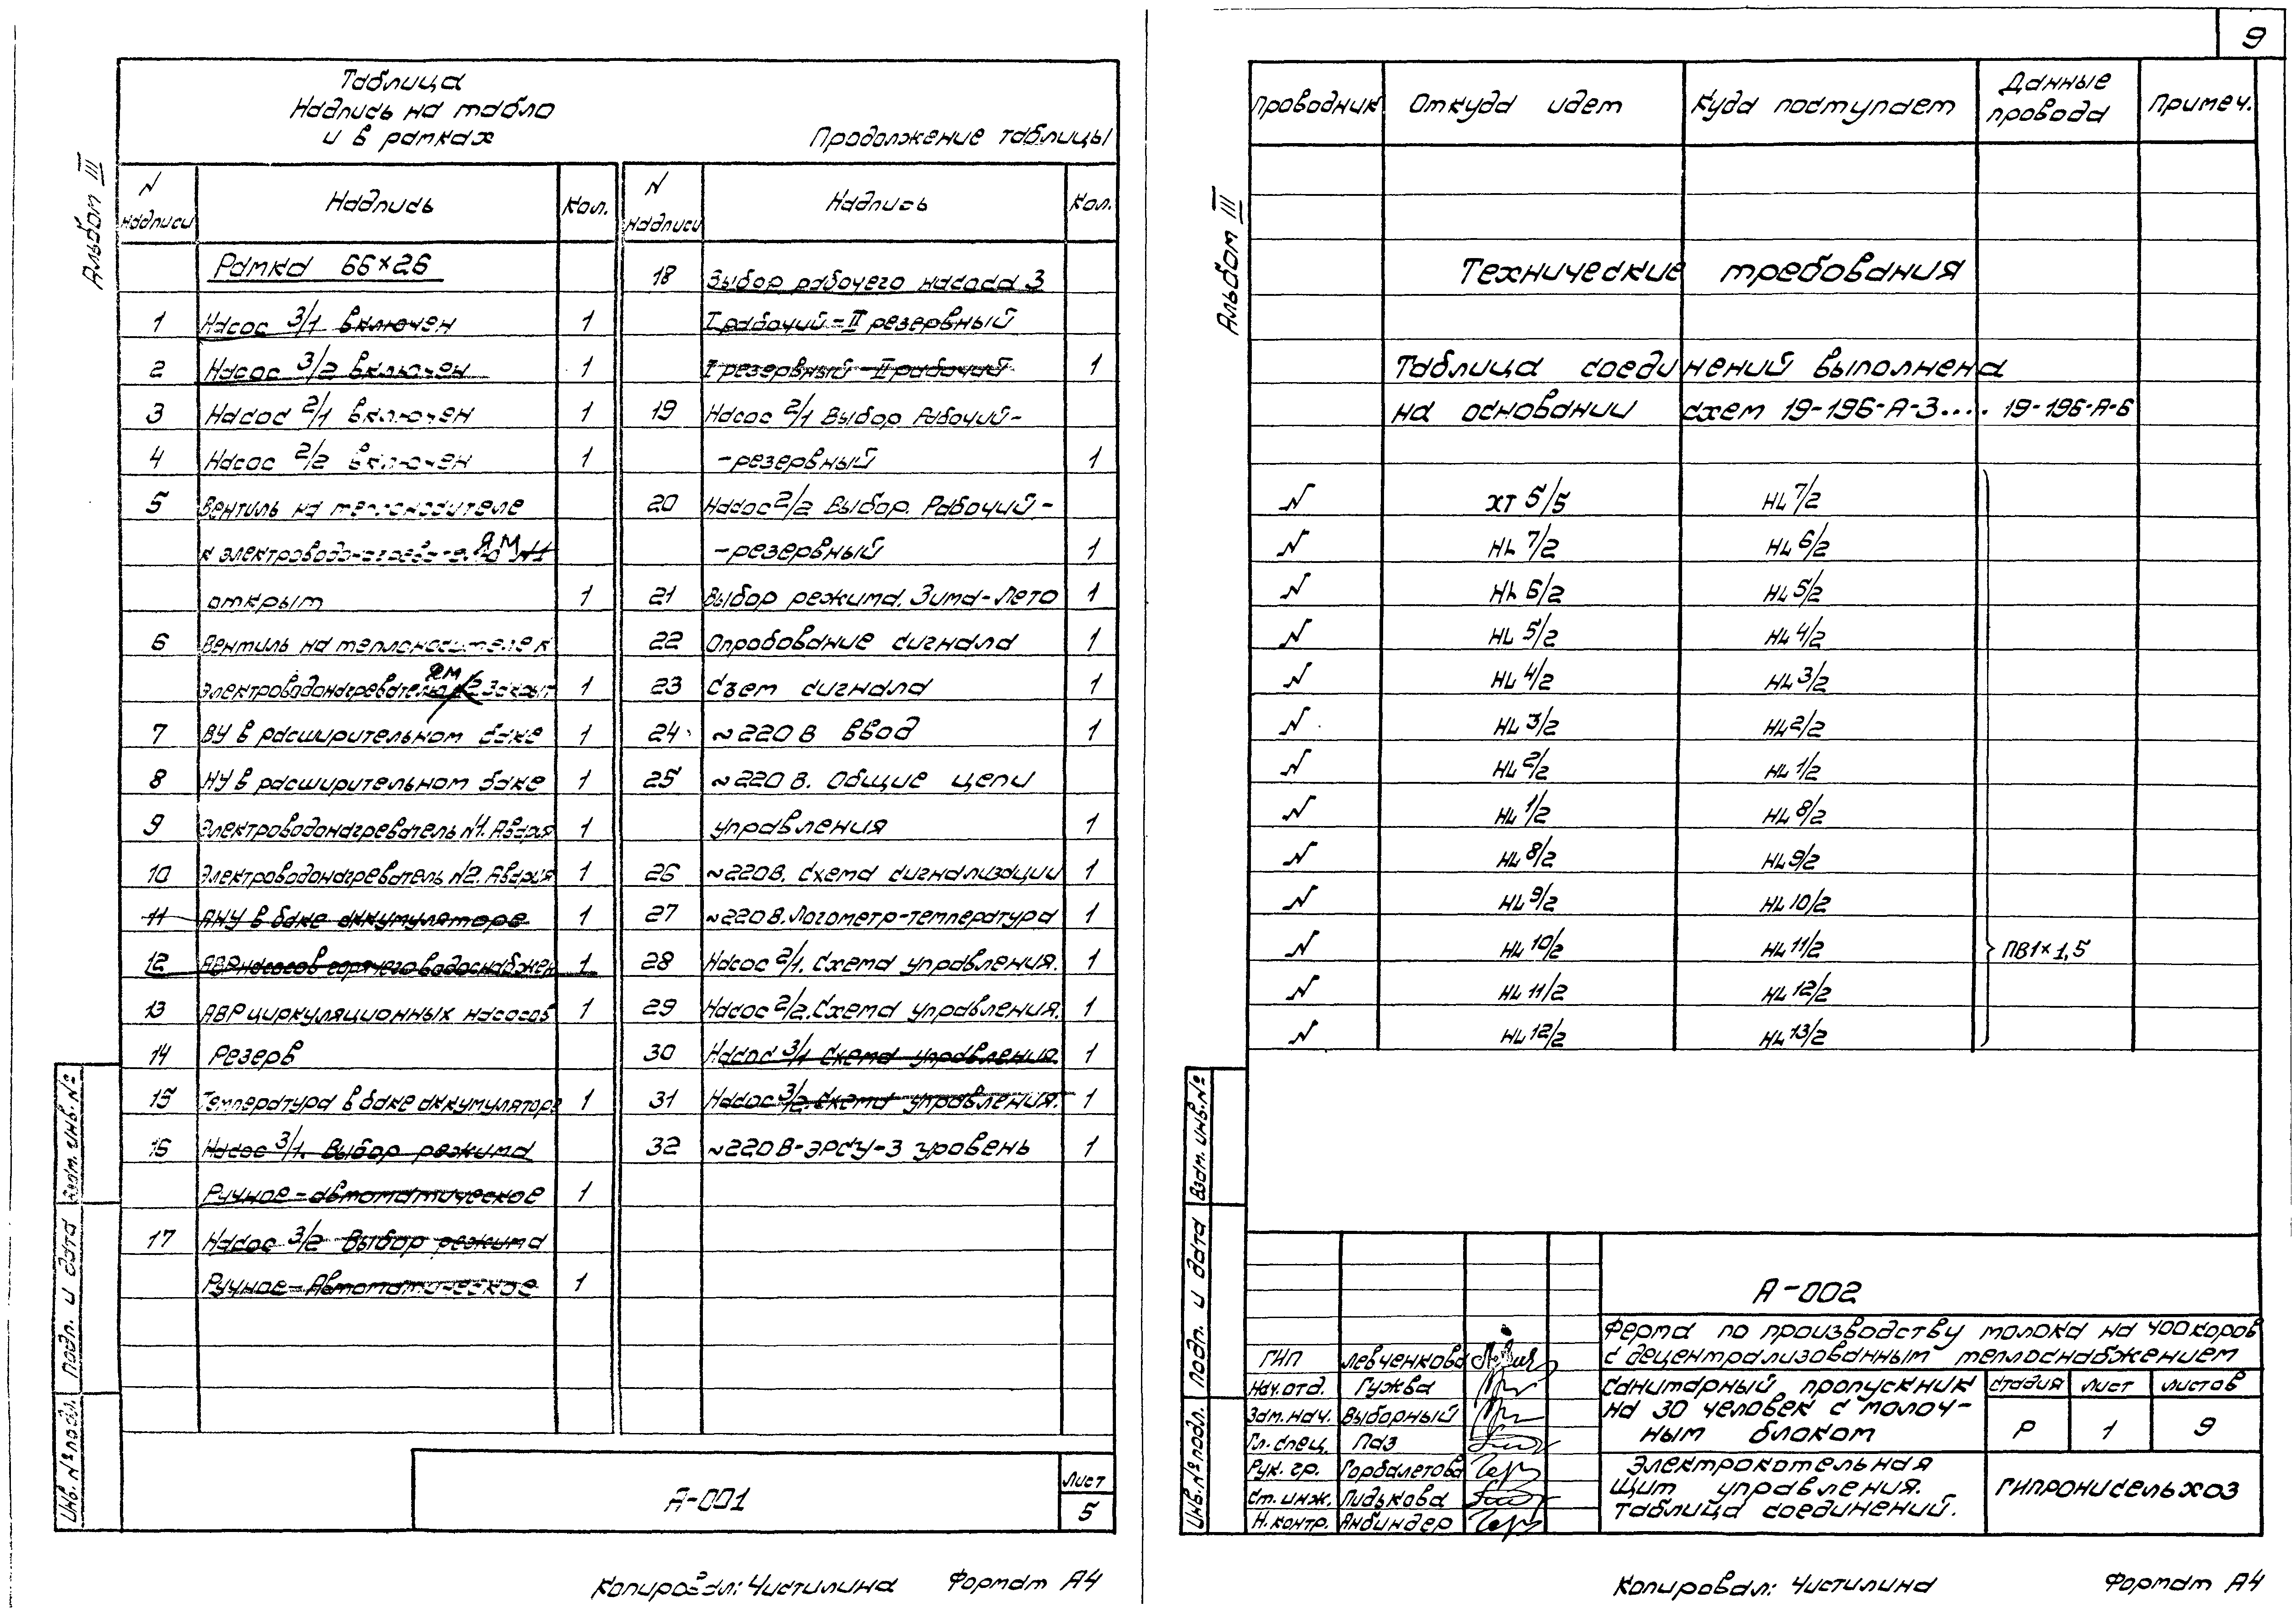 Альбом III
Таблица
Надпись на табло
и в рамках
Продолжение таблицы
N надписи Надпись Кол. N надписи Надпись Кол.
Рамка 66×26
1 Насос 3/1 включен 1
2 Насос 3/2 включен 1
3 Насос 2/1 включен 1
4 Насос 2/2 включен 1
5 Вентиль на теплоносителе
к электроводонагревателю ЯМ N1
открыт 1
6 Вентиль на теплоносителе к
электроводонагревателю ЯМ N2 закрыт 1
7 ВУ в расширительном баке 1
8 НУ в расширительном баке 1
9 Электроводонагреватель N1. Авария 1
10 Электроводонагреватель N2. Авария 1
11 АНУ в баке аккумуляторе 1
12 АВР насосов горячего водоснабжен 1
13 АВР циркуляционных насосов 1
14 Резерв
15 Температура в баке аккумуляторе 1
16 Насос 3/1. Выбор режима
Ручное-автоматическое 1
17 Насос 3/2 Выбор режима
Ручное-Автоматическое 1
18 Выбор рабочего насоса 3
I рабочий-II резервный
I резервный-II рабочий 1
19 Насос 2/1 Выбор Рабочий-
-резервный 1
20 Насос 2/2 Выбор. Рабочий-
-резервный 1
21 Выбор режима. Зима-Лето 1
22 Опробование сигнала 1
23 Съем сигнала 1
24 ~220 В ввод 1
25 ~220 В. Общие цепи
управления 1
26 ~220В. Схема сигнализации 1
27 ~220В. Логометр-температура 1
28 Насос 2/1. Схема управления. 1
29 Насос 2/2. Схема управления. 1
30 Насос 3/1 Схема управления. 1
31 Насос 3/2. Схема управления. 1
32 ~220В-ЭРСУ-3 уровень 1
Инв. № подл. Подп. и дата Взам. инв. №
А-001
Лист
5
Копировал: Чистилина Формат А4
9
Альбом III
Проводник Откуда идет Куда поступает Данные провода Примеч.
Технические требования
Таблица соединений выполнена
на основании схем 19-196-А-3.... 19-196-А-6
N ХТ 5/5 HL 7/2
N HL 7/2 HL 6/2
N HL 6/2 HL 5/2
N HL 5/2 HL 4/2
N HL 4/2 HL 3/2
N HL 3/2 HL 2/2
N HL 2/2 HL 1/2
N HL 1/2 HL 8/2
N HL 8/2 HL 9/2
N HL 9/2 HL 10/2
N HL 10/2 HL 11/2 ПВ1×1,5
N HL 11/2 HL 12/2
N HL 12/2 HL 13/2
Инв. № подл. Подп. и дата Взам. инв. №
А-002
Ферма по производству молока на 400 коров
с децентрализованным теплоснабжением
ГИП Левченкова
Нач. отд. Гужва
Зам. нач. Выборный
Гл. спец. Паз
Рук. гр. Горбалетова
Ст. инж. Пидькова
Н. контр. Анбиндер
Санитарный пропускник
на 30 человек с молоч-
ным блоком
Стадия Лист Листов
Р 1 9
Электрокотельная
Щит управления.
Таблица соединений.
ГИПРОНИСЕЛЬХОЗ
Копировал: Чистилина Формат А4